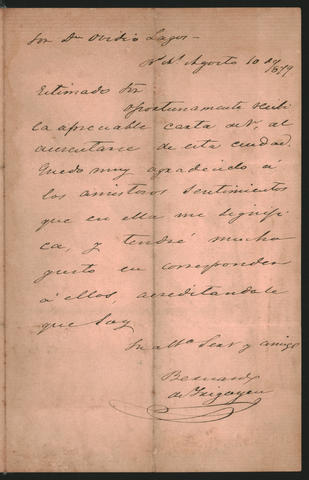 Sor Dn Ovidio Lagos
Bs As Agosto 10 de /879
Estimado Sor
Oportunamente recibi
la apreciable carta de V, al
ausentarse de esta ciudad.
Quedo muy agradecido á
los amistosos sentimientos
que en ella me signifi
ca, y tendré mucho
gusto en corresponder
á ellos, acreditandole
que soy
Su atto Servr y amigo
Bernardo
de Irigoyen